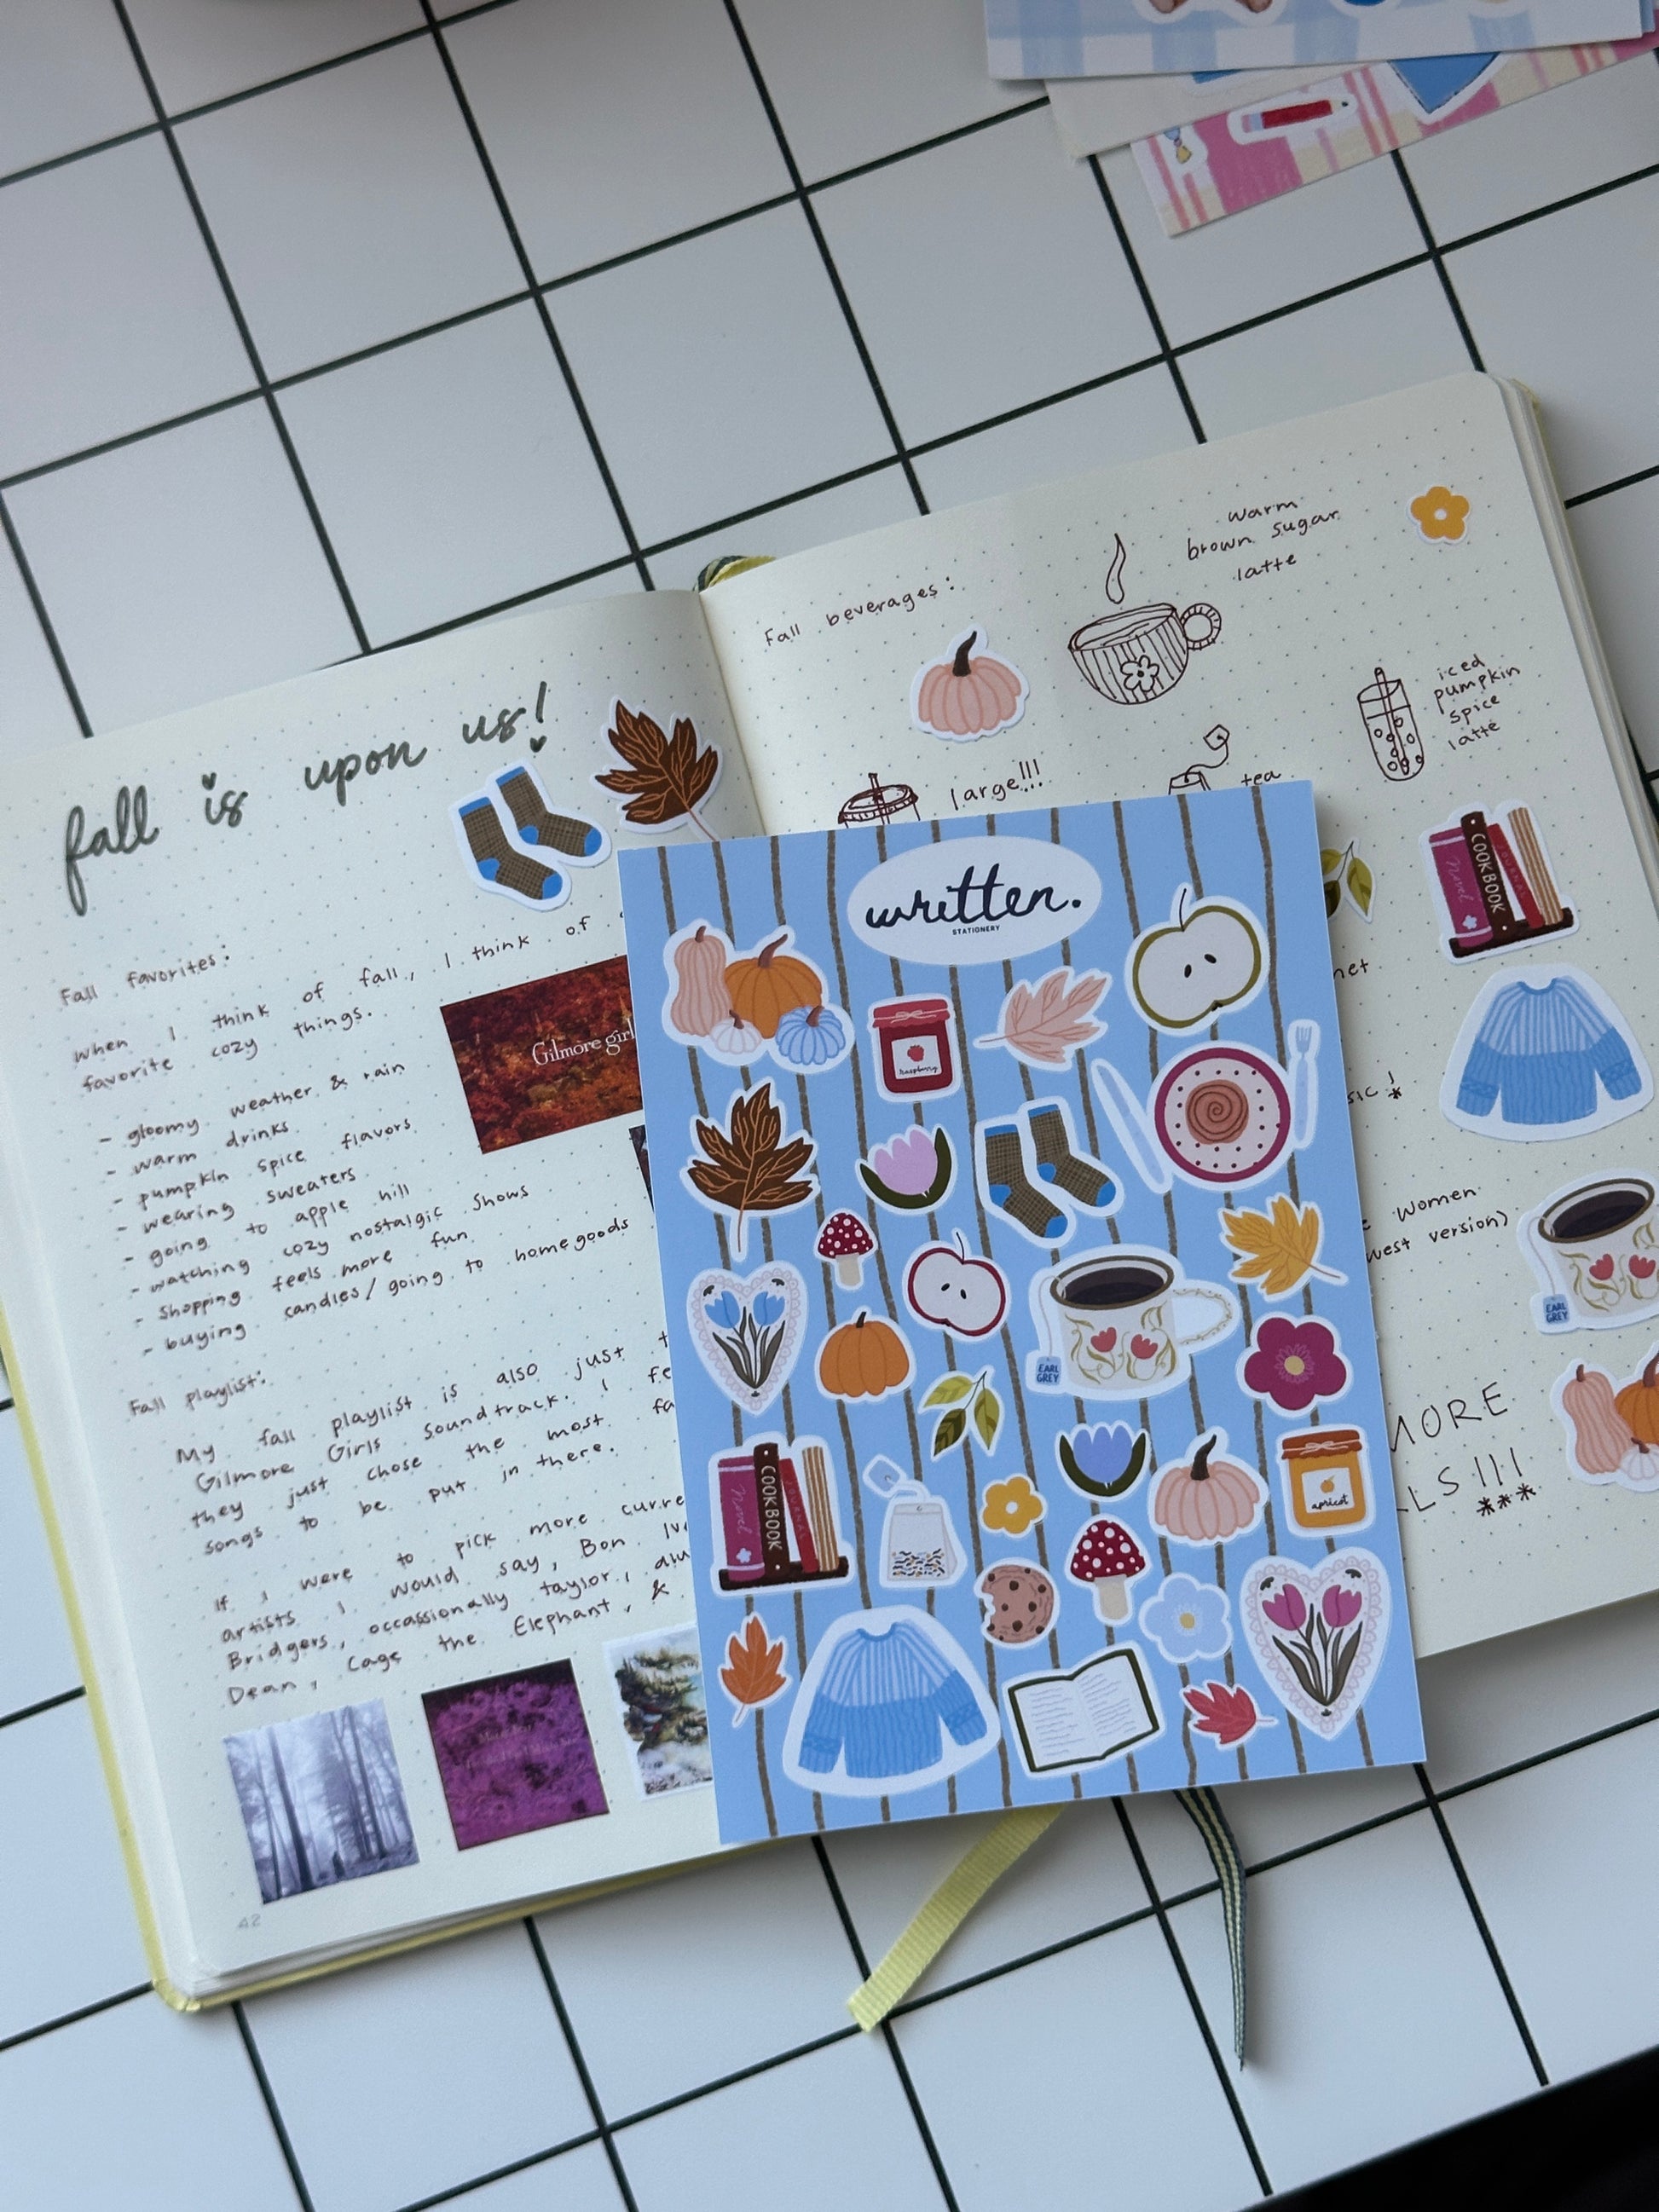 fall is upon us!
Fall favorites:
when I think of fall, I think of
favorite cozy things.
- gloomy weather & rain
- warm drinks
- pumpkin spice flavors
- wearing sweaters
- going to apple hill
- watching cozy nostalgic shows
- shopping feels more fun
- buying candles/going to homegoods
Gilmore girl
Fall playlist:
My fall playlist is also just
Gilmore Girls soundtrack. I
they just chose the most
songs to be put in there.
If I were to pick more
artists I would say, Bon
Bridgers, occassionally taylor,
Dean, Cage the Elephant, &
42
Fall beverages:
warm
brown sugar
latte
iced
pumpkin
spice
latte
large!!!
tea
novel
COOKBOOK
JOURNAL
women
version)
EARL
GREY
written.
STATIONERY
raspberry
EARL
GREY
novel
COOKBOOK
JOURNAL
apricot